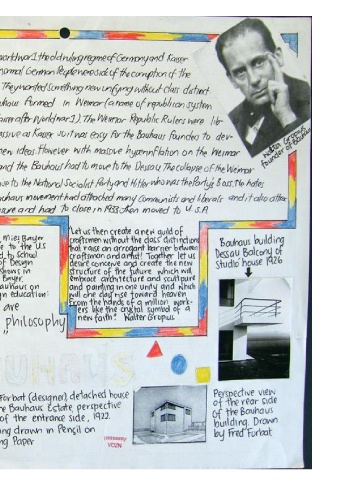 world war 1, the old ruling regime of Germany and Kaiser
normal German People were side of the corruption of the
They wanted something new unifying without class distinct
uhaus formed in Weimar (a name of republican system
aiser after World War 1). The Weimar Republic Rulers were lib-
ssive as Kaiser so it was easy for the Bauhaus founders to dev-
new ideas. However with massive hyperinflation on the Weimar
and the Bauhaus had to move to the Dessau. The collapse of the Weimar
ve to the National Socialist Party and Hitler who was the Party Boss. The Nazis
auhaus movement had attacked many Communists and liberals and it also attac
sure and had to close in 1933 then moved to U.S.A
Walter Gropius
founder of Bauhaus
mies Bauer
e to the U.S
d to School
of Design
shows in
Bauer
auhaus on
gn education
are
philosophy
Let us then create a new guild of
craftsmen without the class distinctions
that raise an arrogant barrier between
craftsman and artist! Together let us
desire conceive and create the new
structure of the future which will
embrace architecture and sculpture
and painting in one unity and which
will one day rise toward heaven
from the hands of a million work-
ers like the crystal symbol of a
new faith." Walter Gropius
Bauhaus building
Dessau Balcony of
Studio house 1926
UHAUS
Forbat (designer), detached house
he Bauhaus Estate, perspective
of the entrance side, 1922.
ng drawn in Pencil on
ng Paper
Perspective view
of the rear side
of the Bauhaus
building. Drawn
by Fred Forbat